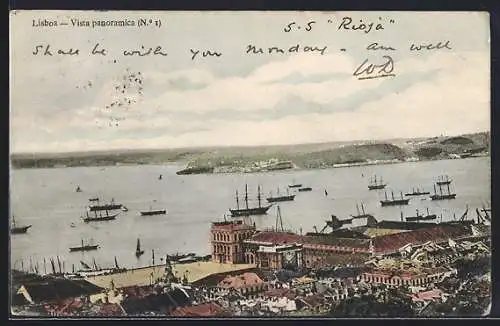 Lisboa — Vista panoramica (N.º 1)
S.S "Rioja"
Shall be with you Monday - am well
WD